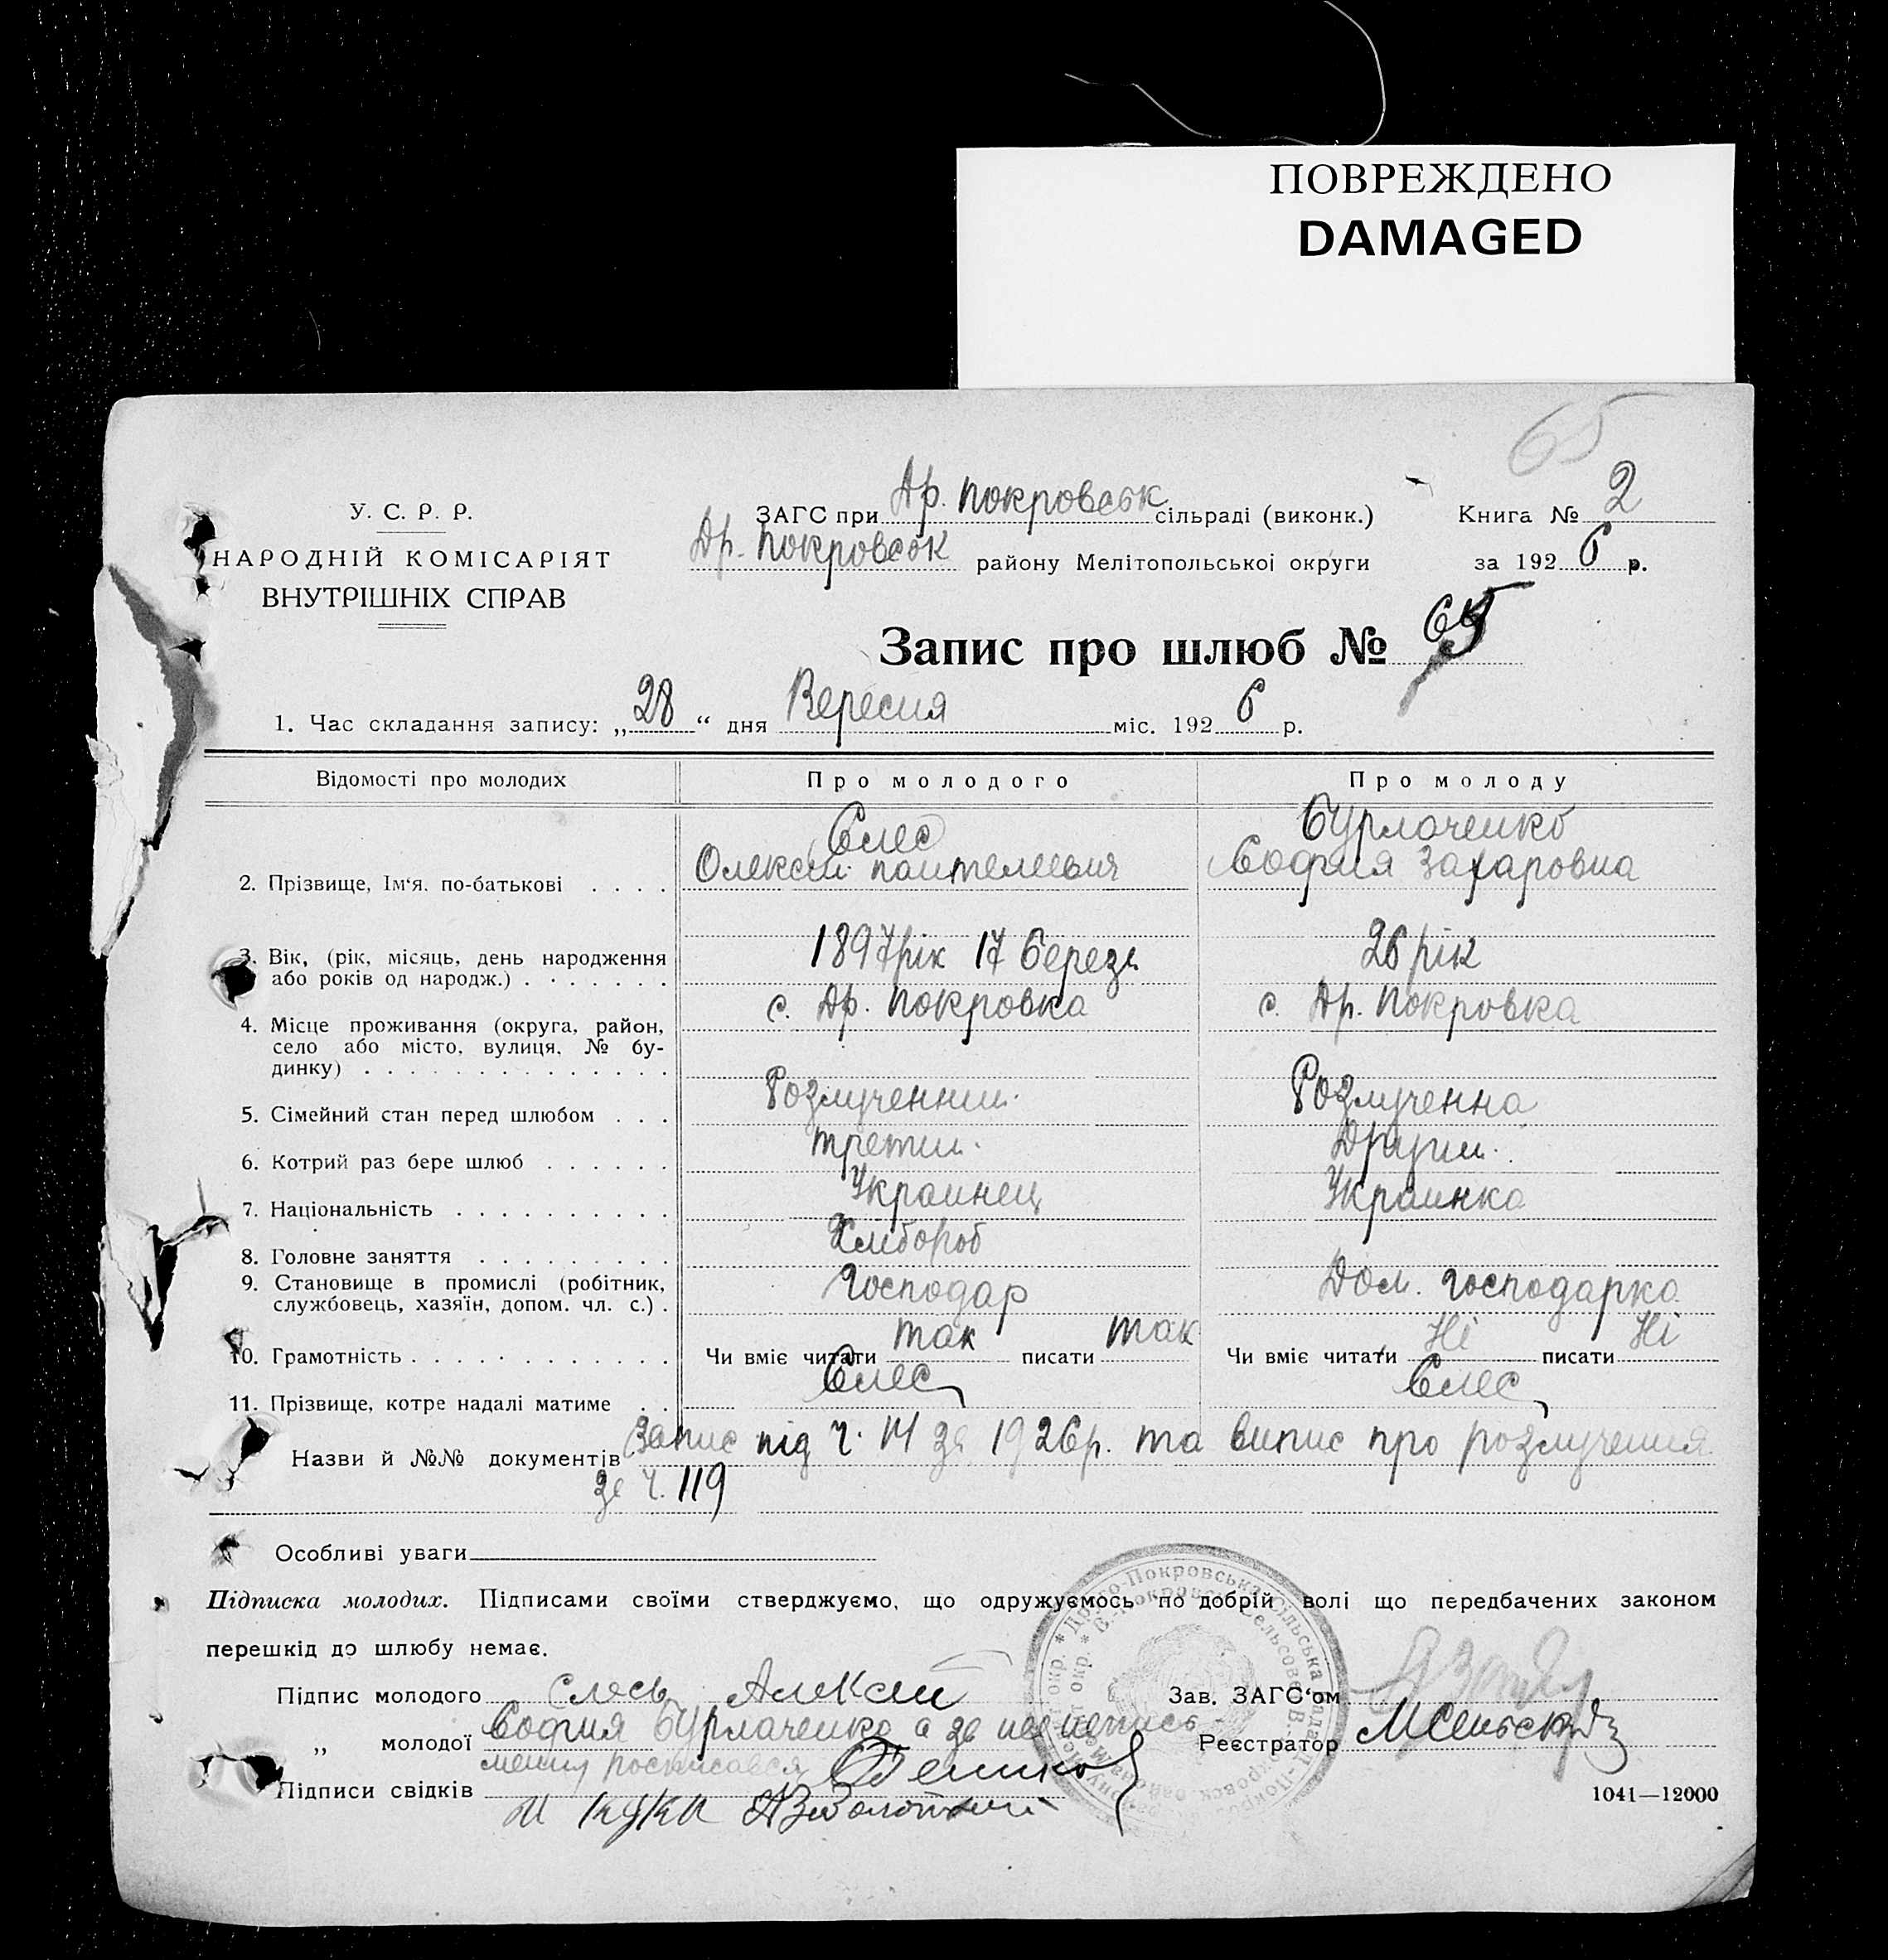 ПОВРЕЖДЕНО
DAMAGED
65
У. С. Р. Р.
НАРОДНІЙ КОМІСАРІЯТ
ВНУТРІШНІХ СПРАВ
ЗАГС при Др. Покровськ сільраді (виконк.)
Др. Покровськ району Мелітопольської округи
Книга № 2
за 1926 р.
Запис про шлюб № 65
1. Час складання запису: „28“ дня Вересня міс. 1926 р.
Відомості про молодих Про молодого Про молоду
Слесь Бурлаченко
2. Прізвище, Ім'я, по-батькові . . . . Олексій Пантелеевич София Захаровна
3. Вік, (рік, місяць, день народження 1897 рік 17 березя 26 рік
або років од народж.) . . . . . . .
4. Місце проживання (округа, район, с. Др. Покровка с. Др. Покровка
село або місто, вулиця, № бу-
динку) . . . . . . . . . . . . . .
5. Сімейний стан перед шлюбом . . . Розлученний Розлученна
6. Котрий раз бере шлюб . . . . . . третий Другий
7. Національність . . . . . . . . . . Украинец Украинка
8. Головне заняття . . . . . . . . . Хлибороб
9. Становище в промислі (робітник, Господар Дом. господарка
службовець, хазяїн, допом. чл. с.) .
10. Грамотність . . . . . . . . . . . . Чи вміє читати так писати так Чи вміє читати Ні писати Ні
11. Прізвище, котре надалі матиме . . Слесь Слесь
Назви й №№ документів Запис під ч. 14 за 1926 р. та випис про розлучення
за ч. 119
Особливі уваги
Підписка молодих. Підписами своїми стверджуємо, що одружуємось по добрій волі що передбачених законом
перешкід до шлюбу немає.
Підпис молодого Слесь Алексей
Зав. ЗАГС'ом
„ молодої София Бурлаченко а за неї
Реєстратор
росписався
Підписи свідків
1041—12000